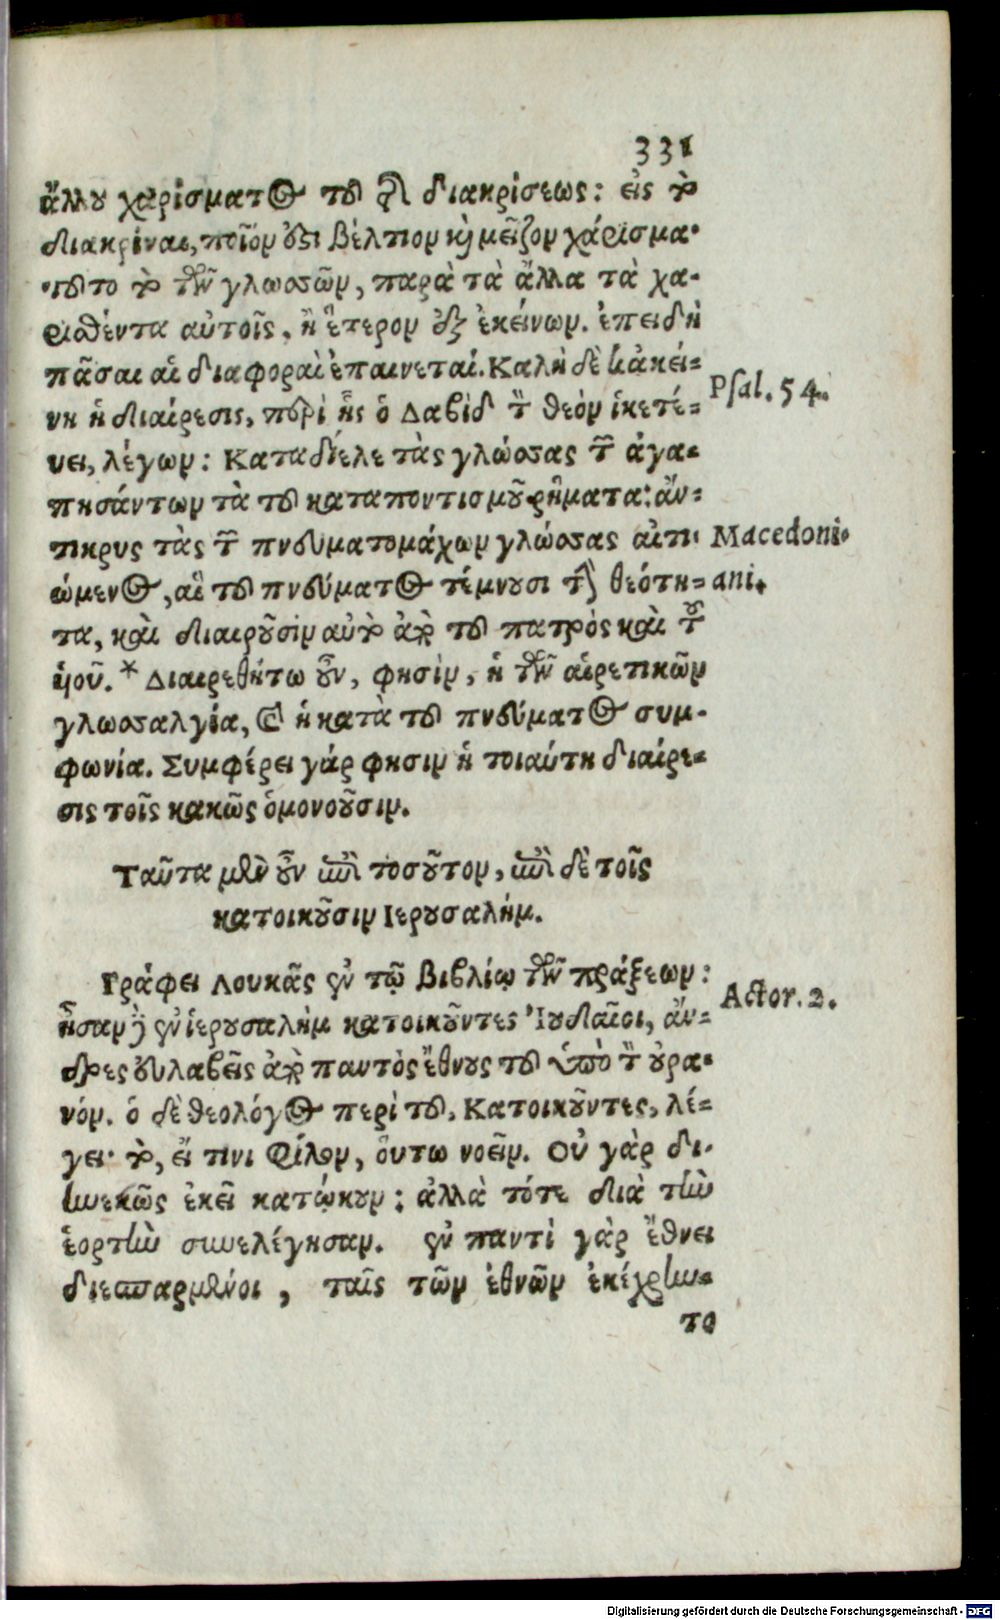 331
ἄλλου χαρίσματος τοῦ τῆς διακρίσεως: εἰς τὸ
διακρίναι, ποῖόν ἐστι βέλτιον καὶ μεῖζον χάρισμα·
τοῦτο τὸ τῶν γλωσσῶν, παρὰ τὰ ἄλλα τὰ χα-
ρισθέντα αὐτοῖς, ἢ ἕτερον ἐξ ἐκείνων. ἐπειδὴ
πᾶσαι αἱ διαφοραὶ ἐπαινεταί. Καλὴ δὲ κἀκεί-
νη ἡ διαίρεσις, περὶ ἧς ὁ Δαβὶδ τὸν θεὸν ἱκετέ-
Psal. 54.
υει, λέγων: Καταδίελε τὰς γλώσσας τῶν ἀγα-
πησάντων τὰ τοῦ καταποντισμοῦ ῥήματα: ἄν-
τικρυς τὰς τῶν πνευματομάχων γλώσσας αἰτι-
Macedoni-
ώμενος, αἳ τοῦ πνεύματος τέμνουσι τὴν θεότη-
ani.
τα, καὶ διαιροῦσιν αὐτὸ ἀπὸ τοῦ πατρὸς καὶ τοῦ
ὑιοῦ.* Διαιρεθήτω οὖν, φησὶν, ἡ τῶν αἱρετικῶν
γλωσσαλγία, καὶ ἡ κατὰ τοῦ πνεύματος συμ-
φωνία. Συμφέρει γάρ φησιν ἡ τοιαύτη διαίρε-
σις τοῖς κακῶς ὁμονοοῦσιν.
Ταῦτα μὲν οὖν ἐπὶ τοσοῦτον, ἐπὶ δὲ τοῖς
κατοικοῦσιν Ιερουσαλήμ.
Γράφει Λουκᾶς ἐν τῷ βιβλίῳ τῶν πράξεων:
Actor. 2.
ἦσαν δὲ ἐν ἱερουσαλὴμ κατοικοῦντες Ἰουδαῖοι, ἄν-
δρες εὐλαβεῖς ἀπὸ παντὸς ἔθνους τοῦ ὑπὸ τὸν οὐρα-
νόν. ὁ δὲ θεολόγος περὶ τοῦ, Κατοικοῦντες, λέ-
γει· τὸ, εἴ τινι φίλον, οὕτω νοεῖν. Οὐ γὰρ δι-
ηνεκῶς ἐκεῖ κατῴκουν: ἀλλὰ τότε διὰ τὴν
ἑορτὴν συνελέγησαν. ἐν παντὶ γὰρ ἔθνει
διεσπαρμένοι, ταῖς τῶν ἐθνῶν ἐκέχρην-
το
Digitalisierung gefördert durch die Deutsche Forschungsgemeinschaft - DFG